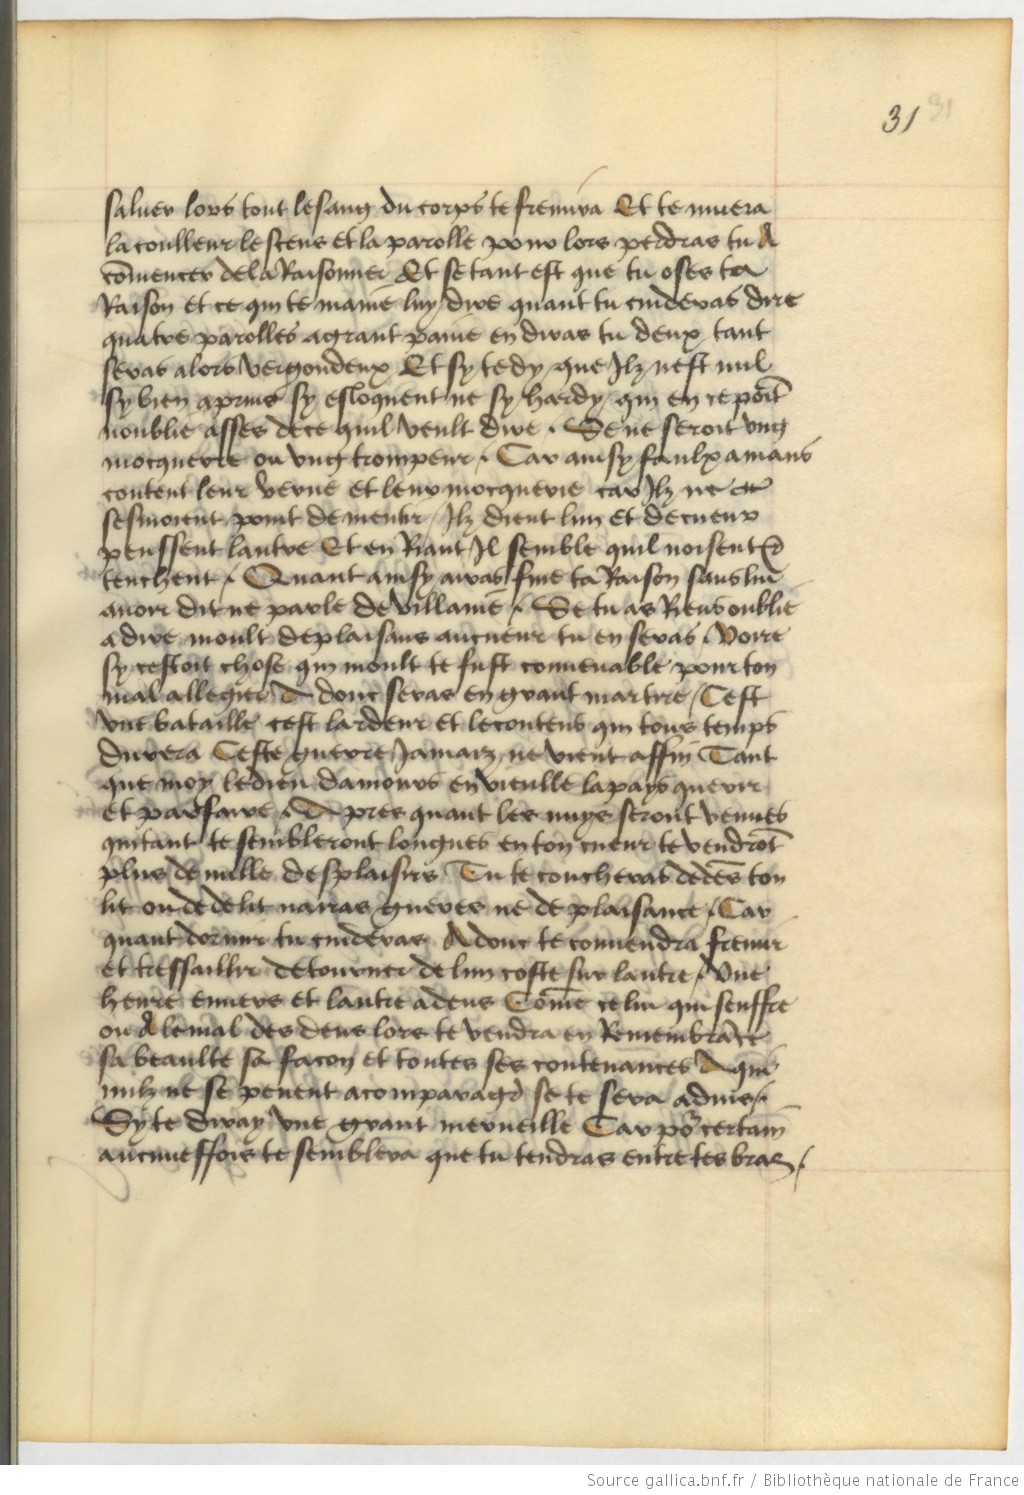 31 31
saluer lors tout le sang du corps te fremira Et te muera
la coulleur le scens et la parolle pour lors perdras tu A
cōmencer de la Raisonner Et se tant est que tu oses ta
Raison et ce qui te maine luy dire quant tu cuideras dire
quatre parolles a grant paine en diras tu deux tant
seras alors vergondeux Et sy te dy que Jlz nest nul
sy bien aprins sy esloquent ne sy hardy qui en ce poīt
noublie asses de ce quil veult dire . Se ne seroit vng
mocquerre ou vng trompeur . Car ainsy faulx amans
content leur verue et leur mocquerie car Jlz ne
sesmoient point de mentir Jlz dient lun et de cueur
penssent lautre Et en Riant Jl semble quil noisent
tenchent . Quant ainsy auras fine ta Raison sans luī
auoir dit ne parle de villanie . Se tu as Riens oublie
a dire moult deplaisans au cueur tu en seras . Voire
sy cestoit chose qui moult te fust conuenable pour ton
mal allegier A donc seras en grant martire / Cest
vne bataille cest lardeur et le contens qui tous temps
durera Ceste guerre Jamaiz ne vient affin Tant
que moy le dieu damours en vieulle la pays querir
et parfaire . A pres quant les nuys seront venues
qui tant te sembleront longues en ton cueur te vendrōt
plus de mille desplaisirs Tu te coucheras dedēs ton
lit ou de delit nairas gueres ne de plaisance / Car
quant dormir tu cuideras A donc te conuendra fremir
et tressaillir de tourner de lun coste sur lautre / Vne
heure enuers et lautre a dens Cōme celui qui seuffre
ou A le mal des dens lors te vendra en Remembrāce
sa beaulte sa facon et toutes ses contenances A qui
nulz ne se peuent acomparager se te sera aduis .
Sy te diray vne grant merueille Car por certain
aucuneffois te semblera que tu tendras entre tes bras .
Source gallica.bnf.fr / Bibliothèque nationale de France